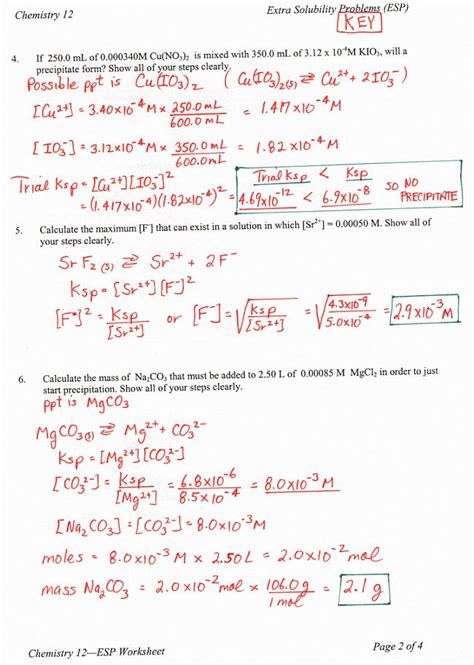 Chemistry 12
Extra Solubility Problems (ESP)
KEY
4. If 250.0 mL of 0.000340M Cu(NO₃)₂ is mixed with 350.0 mL of 3.12 x 10⁻⁴M KIO₃, will a
precipitate form? Show all of your steps clearly.
Possible ppt is Cu(IO₃)₂ ( Cu(IO₃)₂(s) ⇌ Cu²⁺ + 2IO₃⁻)
[Cu²⁺] = 3.40x10⁻⁴M x 250.0mL/600.0mL = 1.417x10⁻⁴M
[IO₃⁻] = 3.12x10⁻⁴M x 350.0mL/600.0mL = 1.82x10⁻⁴M
Trial Ksp = [Cu²⁺][IO₃⁻]²
= (1.417x10⁻⁴)(1.82x10⁻⁴)²
Trial Ksp < Ksp
4.69x10⁻¹² < 6.9x10⁻⁸
SO NO
PRECIPITATE
5. Calculate the maximum [F⁻] that can exist in a solution in which [Sr²⁺] = 0.00050 M. Show all of
your steps clearly.
SrF₂(s) ⇌ Sr²⁺ + 2F⁻
Ksp = [Sr²⁺][F⁻]²
[F⁻]² = Ksp/[Sr²⁺] or [F⁻] = √Ksp/[Sr²⁺] = √4.3x10⁻⁹/5.0x10⁻⁴ = 2.9x10⁻³M
6. Calculate the mass of Na₂CO₃ that must be added to 2.50 L of 0.00085 M MgCl₂ in order to just
start precipitation. Show all of your steps clearly.
ppt is MgCO₃
MgCO₃(s) ⇌ Mg²⁺ + CO₃²⁻
Ksp = [Mg²⁺][CO₃²⁻]
[CO₃²⁻] = Ksp/[Mg²⁺] = 6.8x10⁻⁶/8.5x10⁻⁴ = 8.0x10⁻³M
[Na₂CO₃] = [CO₃²⁻] = 8.0x10⁻³M
moles = 8.0x10⁻³M x 2.50L = 2.0x10⁻²mol
mass Na₂CO₃ = 2.0x10⁻²mol x 106.0g/1mol = 2.1g
Chemistry 12—ESP Worksheet
Page 2 of 4